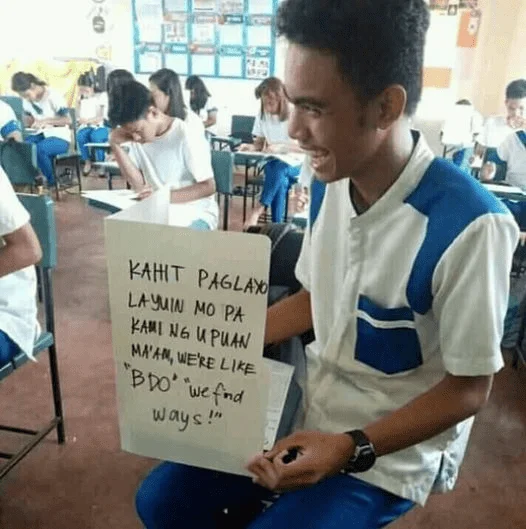 KAHIT PAGLAYO
LAYUIN MO PA
KAMI NG UPUAN
MA'AM, WE'RE LIKE
"BDO" "we find
ways!"